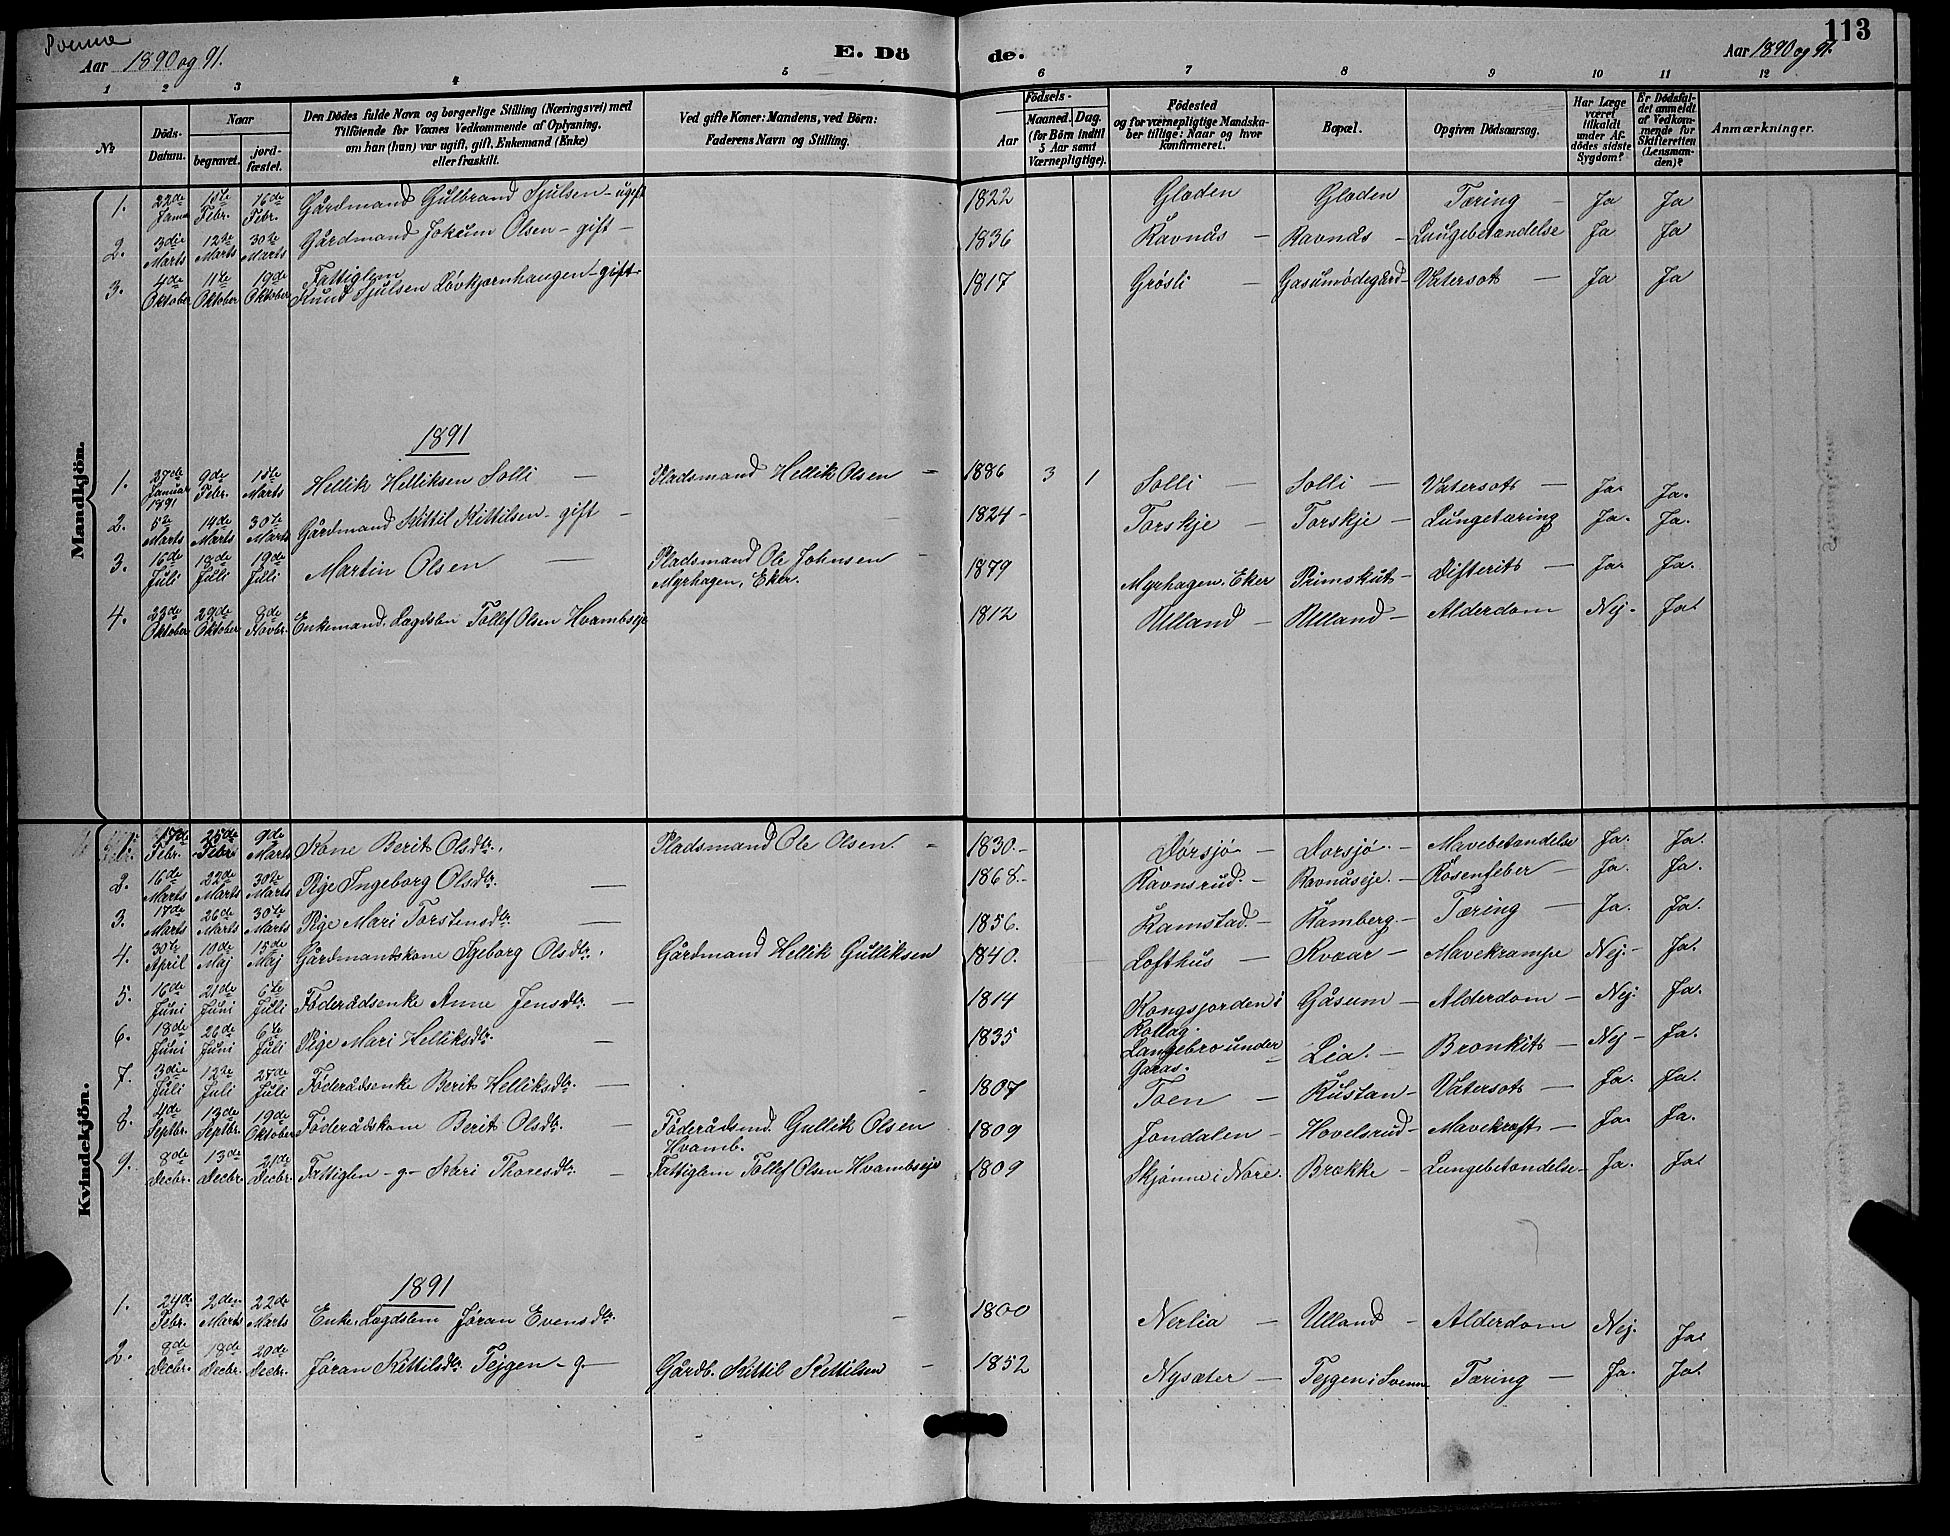 Svenne
Aar 1890 og 91.
E. Dö
de.
113
Aar 1890 og 91.
1 2 3 4 5 6 7 8 9 10 11 12
No
Döds-Datum.
Naar
begravet.
jord-fæstet.
Den Dödes fulde Navn og borgerlige Stilling (Næringsvei) med
Tilföiende for Voxnes Vedkommende af Oplysning,
om han (hun) var ugift, gift, Enkemand (Enke)
eller fraskilt.
Ved gifte Koner: Mandens, ved Börn:
Faderens Navn og Stilling.
Födsels-
Aar
Maaned. Dag.
(for Börn indtil
5 Aar samt
Værnepligtige).
Födested
og for værnepligtige Mandska-
ber tillige: Naar og hvor
konfirmeret.
Bopæl.
Opgiven Dödsaarsag.
Har Læge
været
tilkaldt
under Af-
dödes sidste
Sygdom?
Er Dödsfal-
det anmeldt
af Vedkom-
mende for
Skifteretten
(Lensman-
den)?
Anmærkninger.
Mandkjön.
1. 22de Janu 15de Febr. 16de Febr. Gårdmand Gulbrand Sjulsen - ugift 1822 Gladen Gladen Tæring - Ja Ja
2. 3die Marts 12te Marts 30te Marts Gårdmand Jokum Olsen - gift - 1836 Ravnås - Ravnås - Lungebetændelse Ja Ja
3. 4de Oktober 11te Oktober 19de Oktober Fattiglem Knud Sjulsen Løvkjørnhaugen - gift - 1817 Grøsli - Gasumødegård - Vatersot - Ja Ja
1891
1. 27de Januar 1891 9de Febr. 15te Marts Hellik Helliksen Solli - Pladsmand Hellik Olsen - 1886 3 1 Solli - Solli - Vatersot - Ja. Ja.
2. 5te Marts 14de Marts 30te Marts Gårdmand Kittil Kittilsen - gift - 1824 - Torskje - Torskje - Lungetæring Ja. Ja.
3. 16de Juli 18de Juli 19de Juli Martin Olsen - Pladsmand Ole Johnsen Myrhagen, Eker. 1879 Myrhagen, Eker Primskut - Difterit - Ja. Ja.
4. 23de Oktober 29de Oktober 8de Novbr. Enkemand, Lægdslem Tollef Olsen Hvambseje 1812 Ulland - Ulland - Alderdom Nej. Ja.
Kvindekjön.
1. 17de Febr. 25de Febr. 9de Marts Kone Berit Olsdtr. Pladsmand Ole Olsen. - 1830. - Dørsjø - Dørsjø. - Mavebetændelse Ja. Ja.
2. 16de Marts 22de Marts 30te Marts Pige Ingeborg Olsdtr. - 1868. - Ravnsrud. - Ravnåseje. - Rosenfeber - Ja. Ja.
3. 17de Marts 26de Marts 30te Marts Pige Mari Torstensdtr. - 1856. Ramstad. - Ramberg. - Tæring - Ja. Ja.
4. 30te April 10de Maj 15de Maj Gårdmandskone Igeborg Olsdtr. Gårdmand Hellik Gulliksen 1840. Lofthus - Kvaar - Mavekrampe Nej. - Ja.
5. 16de Juni 21de Juni 6te Juli Føderådsenke Anne Jensdtr. - 1814 Kongsjorden i Rollag. Gåsum - Alderdom - Nej. Ja.
6. 18de Juni 26de Juni 6te Juli Pige Mari Helliksdtr. - 1835 Langebro under Garås. - Lia. - Bronkit - Nej - Ja.
7. 3die Juli 12te Juli 27de Juli Føderådsenke Berit Helliksdtr. - 1807 Toen - Rustan - Vatersot - Ja. Ja.
8. 4de Septbr. 13de Septbr. 19de Oktober Føderådskone Berit Olsdtr. - Føderådsmd. Gullik Olsen Hvamb. 1809 Jondalen - Hovelsrud - Mavekræft - Ja. Ja.
9. 8de Decbr. 13de Decbr. 21de Decbr. Fattiglem - g - Kari Thoresdtr. - Fattiglem Tollef Olsen Hvambseje 1809 Skjønne i Nore. Brække - Lungebetændelse - Ja. Ja.
1891
1. 24de Febr. 2den Marts 22de Marts Enke, Lægdslem Jøran Evensdtr. - 1800 Nerlia - Ulland - Alderdom Nej. Ja.
2. 8de Decbr. 18de Decbr. 20de Decbr. Jøran Kittilsdtr. Tejgen - g - Gårdb. Kittil Kittilsen - 1852 Nysæter - Tejgen i Svenne Tæring - Ja. Ja.